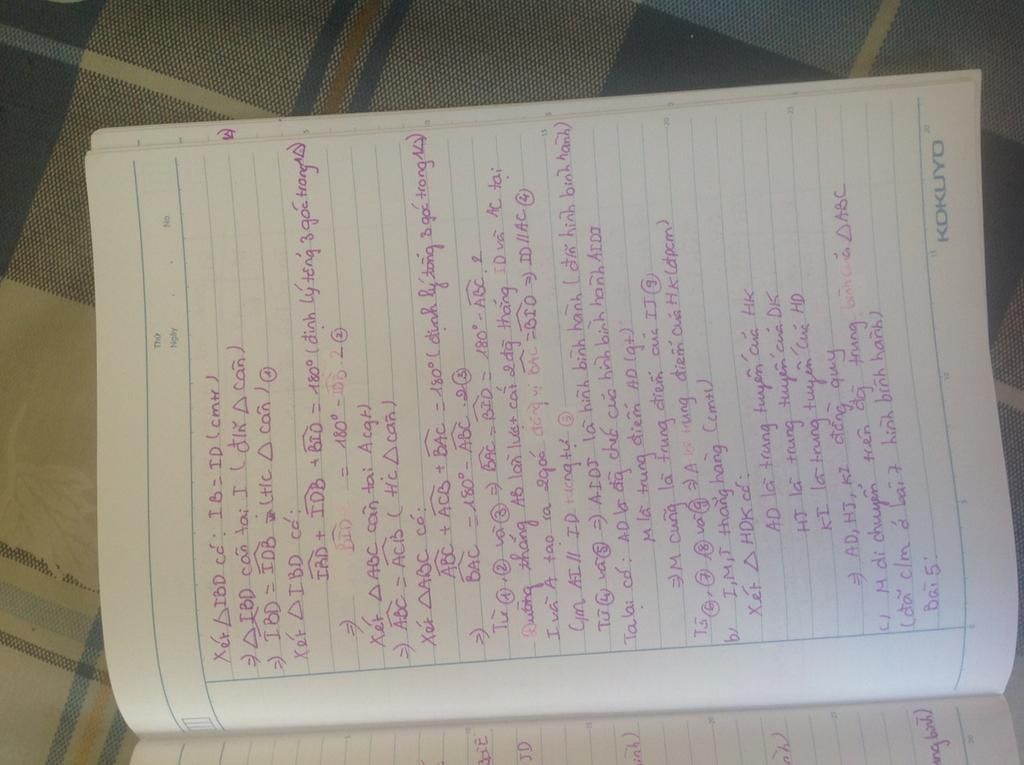 Thứ
Ngày . . No.
Xét △IBD có: IB = ID (cmt)
⇒ △IBD cân tại I (đ/n △ cân)
⇒ IBD = IDB (t/c △ cân) ①
Xét △IBD có:
IBD + IDB + BID = 180° (định lý tổng 3 góc trong 1△)
⇒ BID = 180° - IDB . 2 ②
Xét △ABC cân tại A (gt)
⇒ ABC = ACB (t/c △ cân)
Xét △ABC có:
ABC + ACB + BAC = 180° (định lý tổng 3 góc trong 1△)
⇒ BAC = 180° - ABC . 2 ③
Từ ①, ② và ③ ⇒ BAC = BID = 180° - ABC . 2
Đường thẳng AB lần lượt cắt 2 đg thẳng ID và AC tại
I và A tạo ra 2 góc đồng vị BAC = BID ⇒ ID // AC ④
Cm AI // JD tương tự ⑤
Từ ④ và ⑤ ⇒ AIDJ là hình bình hành (đ/n hình bình hành)
Ta lại có: AD là đg chéo của hình bình hành AIDJ
M là trung điểm AD (gt)
⇒ M cũng là trung điểm của IJ ⑨
Từ ⑥, ⑦, ⑧ và ⑨ ⇒ A là trung điểm của HK (đpcm)
b, I, M, J thẳng hàng (cmt)
Xét △HDK có:
AD là trung tuyến của HK
HJ là trung tuyến của DK
KI là trung tuyến của HD
⇒ AD, HJ, KI đồng quy
c, M di chuyển trên đg trung bình của △ABC
(đã c/m ở bài 7 hình bình hành)
Bài 5:
KOKUYO
JD